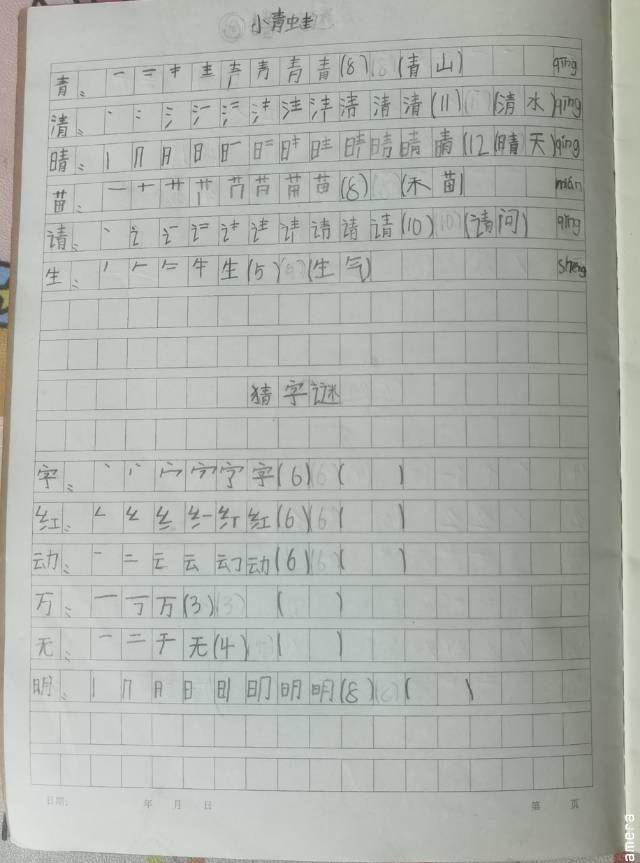 小青蛙
青: 一 二 キ 龶 青 青 青 青 (8) (青山) qīng
清: 丶 冫 氵 清 清 清 (11) (清水) qīng
晴: 丨 冂 日 日 晴 晴 晴 (12 (晴天) qíng
苗: 一 十 艹 苗 (8) (禾苗) miáo
请: 丶 讠 请 请 请 (10) (请问) qǐng
生: 丿 𠂉 牛 生 (5) (生气) shēng
猜字谜
字: 丶 丷 宀 字 字 (6) ( )
红: 纟 红 (6) ( )
动: 一 二 云 云 动 动 (6) ( )
万: 一 丆 万 (3) ( )
无: 一 二 チ 无 (4) ( )
明: 丨 冂 日 日 明 明 明 明 (8) ( )
日期: 年 月 日 第 页
amera